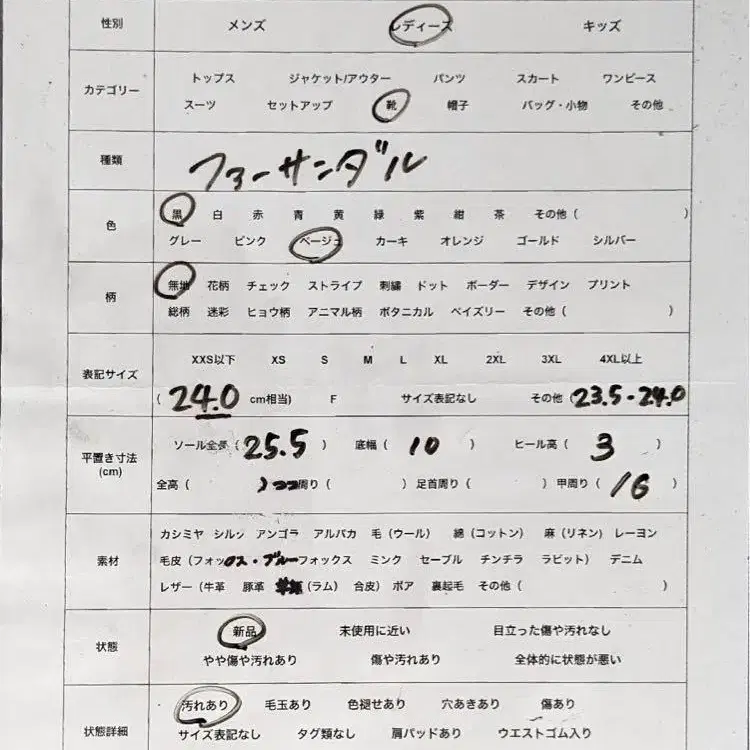 性別 メンズ レディース キッズ
カテゴリー トップス ジャケット/アウター パンツ スカート ワンピース
スーツ セットアップ 靴 帽子 バッグ・小物 その他
種類 ファーサンダル
色 黒 白 赤 青 黄 緑 紫 紺 茶 その他 ( )
グレー ピンク ベージュ カーキ オレンジ ゴールド シルバー
柄 無地 花柄 チェック ストライプ 刺繍 ドット ボーダー デザイン プリント
総柄 迷彩 ヒョウ柄 アニマル柄 ボタニカル ペイズリー その他 ( )
表記サイズ XXS以下 XS S M L XL 2XL 3XL 4XL以上
( 24.0 cm相当) F サイズ表記なし その他 (23.5-24.0
平置き寸法 (cm) ソール全長 ( 25.5 ) 底幅 ( 10 ) ヒール高 ( 3 )
全高 ( ) 周り ( ) 足首周り ( ) 甲周り ( 16 )
素材 カシミヤ シルク アンゴラ アルパカ 毛 (ウール) 綿 (コットン) 麻 (リネン) レーヨン
毛皮 (フォックス・ブルーフォックス ミンク セーブル チンチラ ラビット) デニム
レザー (牛革 豚革 (ラム) 合皮) ボア 裏起毛 その他 ( )
状態 新品 未使用に近い 目立った傷や汚れなし
やや傷や汚れあり 傷や汚れあり 全体的に状態が悪い
状態詳細 汚れあり 毛玉あり 色褪せあり 穴あきあり 傷あり
サイズ表記なし タグ類なし 肩パッドあり ウエストゴム入り